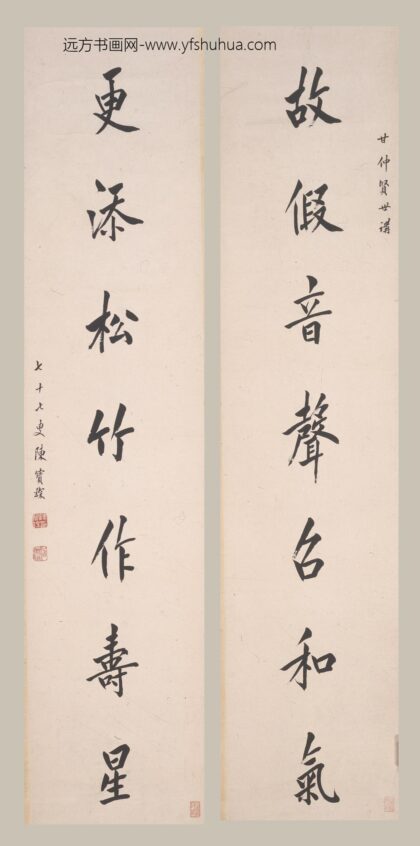 远方书画网-www.yfshuhua.com
甘仲贤世講
故假音聲召和氣
更添松竹作壽星
七十七叟陳寶琛